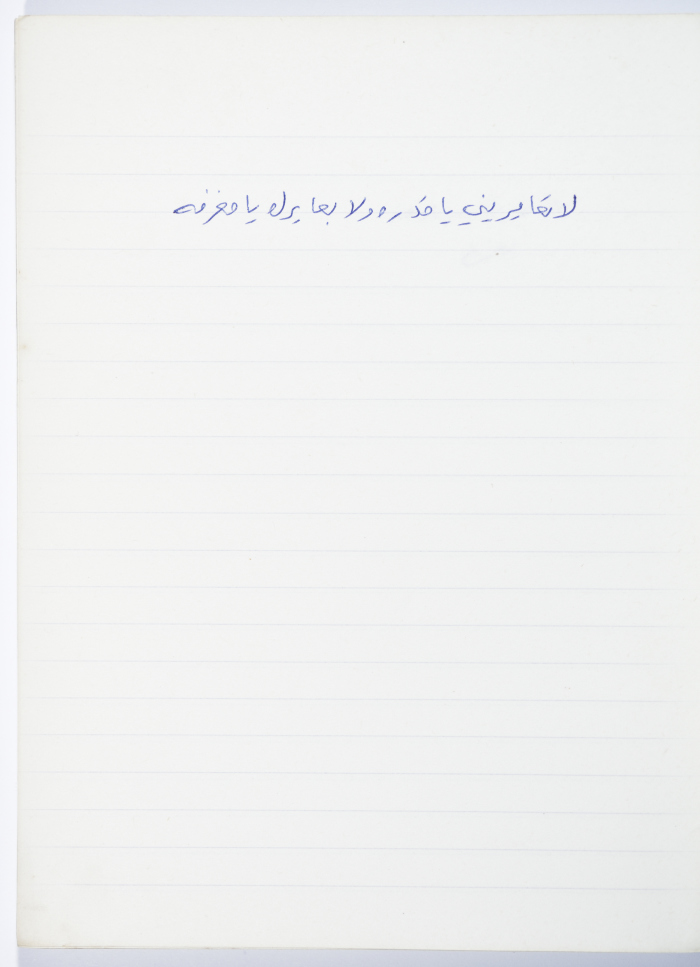 لا تعايريني يا قدره ولا بعايرك يا مغرفه